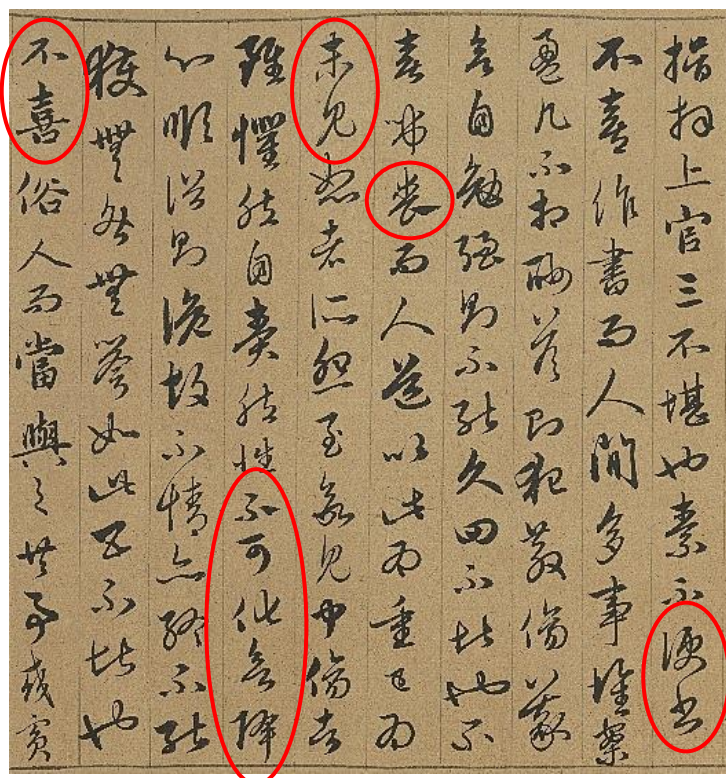 揖拜上官三不堪也素不便書
不喜作書而人間多事堆案
盈几不相酬答則犯教傷義
欲自勉強則不能久四不堪也不
喜吊喪而人道以此為重已為
未見恕者所怨至欲見中傷者
雖懼然自責然性不可化欲降
心順俗則詭故不情亦終不能
獲無咎無譽如此五不堪也
不喜俗人而當與之共事或賓